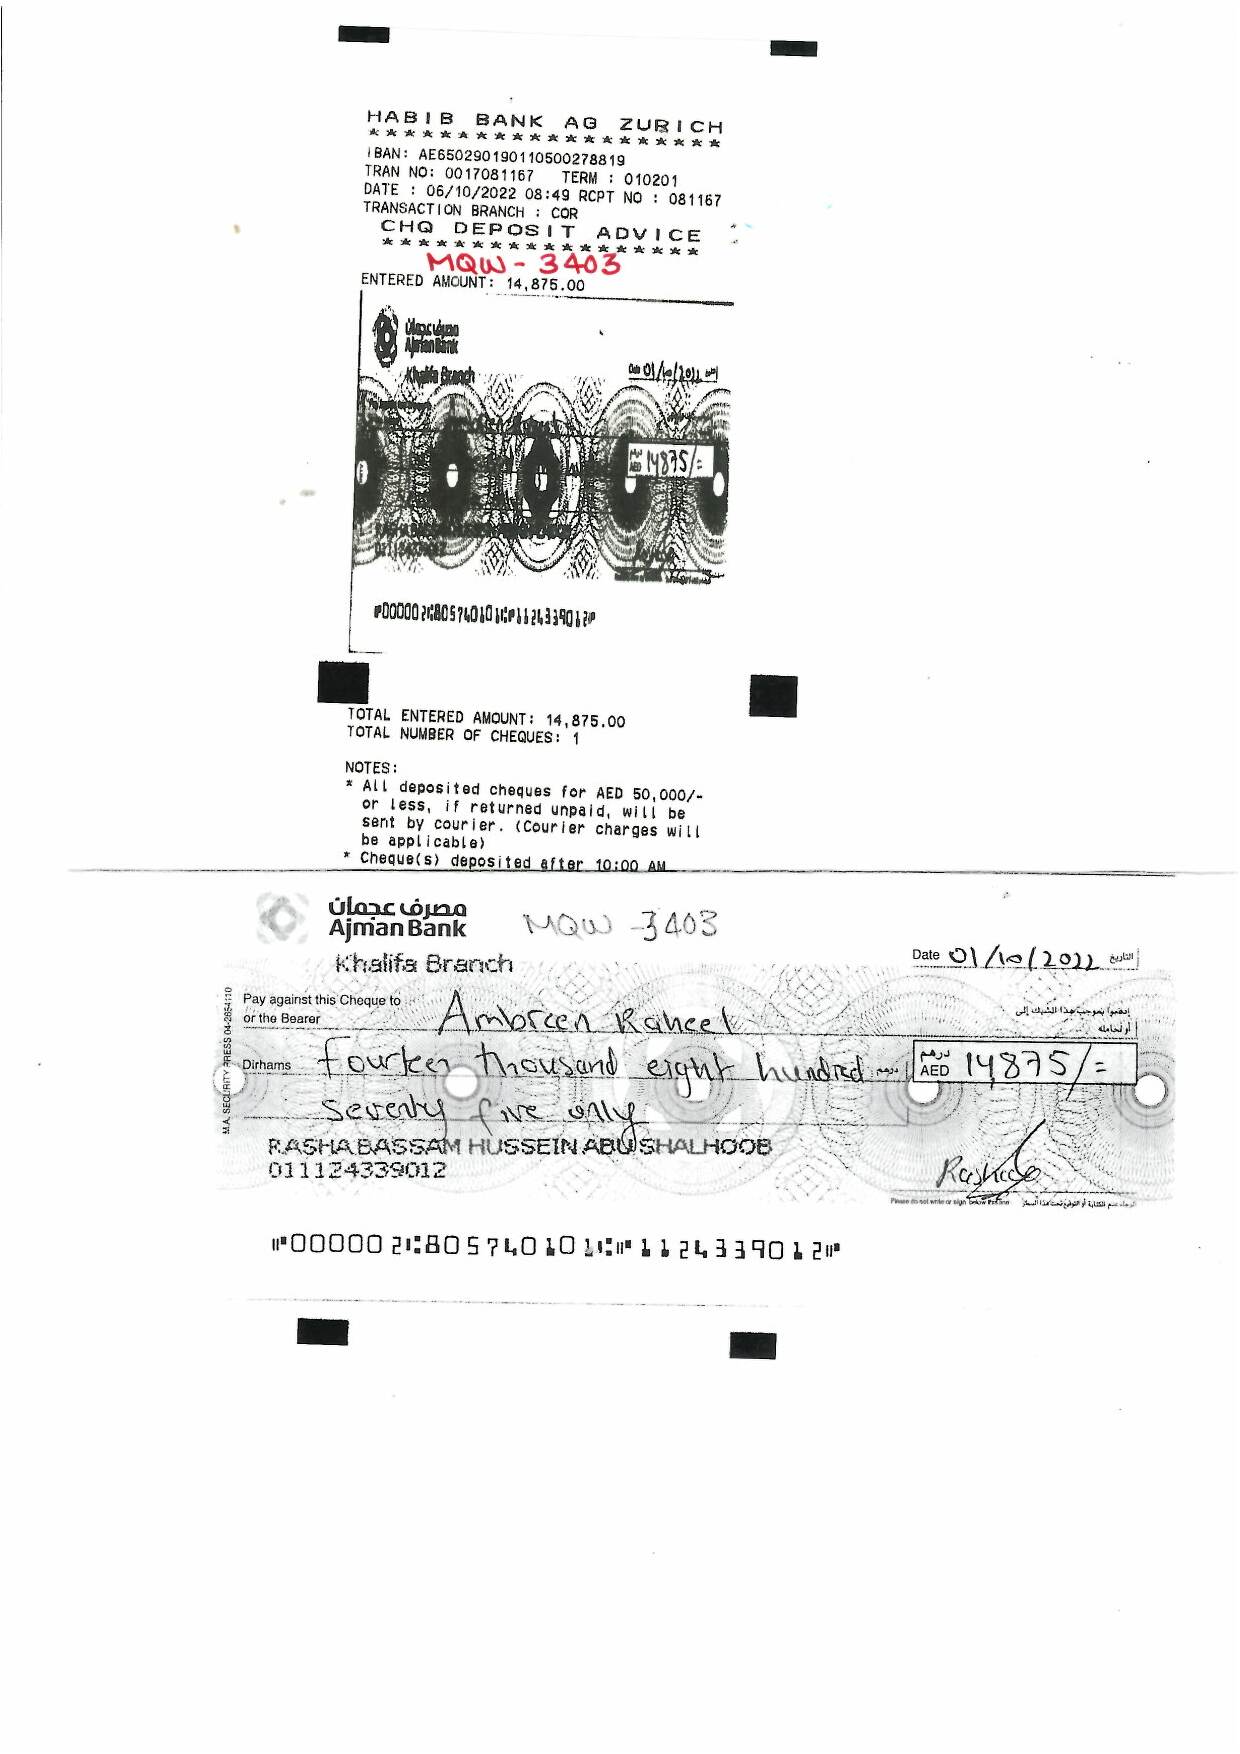 HABIB BANK AG ZURICH
********************
IBAN: AE650290190110500278819
TRAN NO: 0017081167 TERM : 010201
DATE : 06/10/2022 08:49 RCPT NO : 081167
TRANSACTION BRANCH : COR
CHQ DEPOSIT ADVICE
******************
MQW - 3403
ENTERED AMOUNT: 14,875.00
مصرف عجمان
Ajman Bank
Khalifa Branch
Date 01/10/2022
AED 14875/=
⑈000002⑆805740101⑆⑈1124339012⑈
TOTAL ENTERED AMOUNT: 14,875.00
TOTAL NUMBER OF CHEQUES: 1
NOTES:
* All deposited cheques for AED 50,000/-
or less, if returned unpaid, will be
sent by courier. (Courier charges will
be applicable)
* Cheque(s) deposited after 10:00 AM
مصرف عجمان
Ajman Bank
MQW -3403
Khalifa Branch
Date 01/10/2022 التاريخ
Pay against this Cheque to
or the Bearer
Ambreen Raheel
إدفعوا بموجب هذا الشيك إلى
أو لحامله
Dirhams fourteen thousand eight hundred درهم
درهم
AED 14,875/=
seventy five only
RASHA BASSAM HUSSEIN ABU SHALHOOB
011124339012
Please do not write or sign below this line
⑈000002⑆805740101⑆⑈1124339012⑈